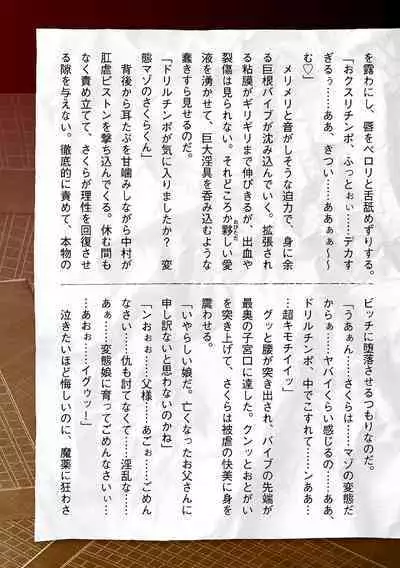 を露わにし、唇をペロリと舌舐めずりする。
「おクスリチンポ、ふっとぉい……デカす
ぎるぅ……ああ、きつい……ああぁぁ～～
む♡」
メリメリと音がしそうな迫力で、身に余
る巨根バイブが沈み込んでいく。拡張され
る粘膜がギリギリまで伸びきるが、出血や
裂傷は見られない。それどころか夥しい愛
液を湧かせて、巨大淫具を呑み込むような
蠢きすら見せるのだ。
「ドリルチンポが気に入りましたか？　変
態マゾのさくらくん」
背後から耳たぶを甘噛みしながら中村が
肛虐ピストンを撃ち込んでくる。休む間も
なく責め立てて、さくらが理性を回復させ
る隙を与えない。徹底的に責めて、本物の
ビッチに堕落させるつもりなのだ。
「うあぁん……さくらは……マゾの変態だ
からぁ……ヤバイくらい感じるの……ああ、
ドリルチンポ、中でこすれて……ンああ…
…超キモチイイッ」
グッと腰が突き出され、バイブの先端が
最奥の子宮口に達した。グンッとおとがい
を突き上げて、さくらは被虐の快美に身を
震わせる。
「いやらしい娘だ。亡くなったお父さんに
申し訳ないと思わないのかね」
「ンおぉぉ……父様……あごぉ……ごめん
なさい……仇も討てなくて……淫乱な……
あぁ……変態娘に育ってごめんなさいぃ…
…あおぉ……イグゥッ！」
泣きたいほど悔しいのに、魔薬に狂わさ